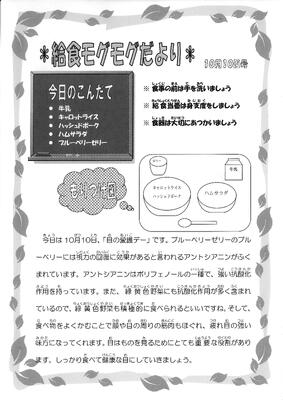 ＊給食モグモグだより＊
10月10日号
今日のこんだて
● 牛乳
● キャロットライス
● ハッシュドポーク
● ハムサラダ
● ブルーベリーゼリー
※ 食事の前は手を洗いましょう
※ 給食当番は身支度をしましょう
※ 食器は大切にあつかいましょう
もりつけ図
牛乳
キャロットライス
ハッシュドポーク
ハムサラダ
今日は10月10日、「目の愛護デー」です。ブルーベリーゼリーのブルー
ベリーには視力の回復に効果があると言われるアントシアニンがふく
まれています。アントシアニンはポリフェノールの一種で、強い抗酸化
作用を持っています。また、緑黄色野菜にも抗酸化作用が多く含まれ
ているので、緑黄色野菜も積極的に食べられるといいですね。そして、
食べ物をよくかむことで顔や目の周りの筋肉もほぐれ、疲れ目の強い
味方になってくれます。目はものを見るためにとても重要な役割があり
ます。しっかり食べて健康な目にしていきましょう。